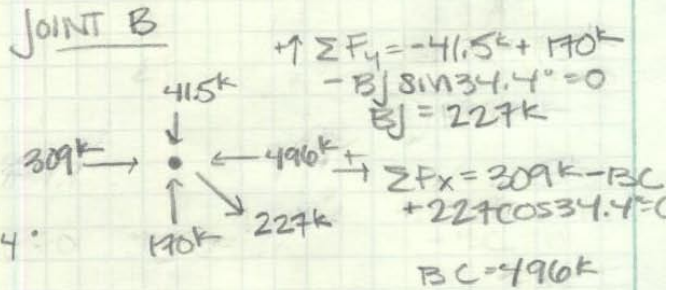 JOINT B
+↑ ΣFy = -41.5k + 170k
- BJ sin 34.4° = 0
BJ = 227k
41.5k
309k
496k
227k
170k
4°
+→ ΣFx = 309k - BC
+ 227cos34.4°=0
BC = 496k